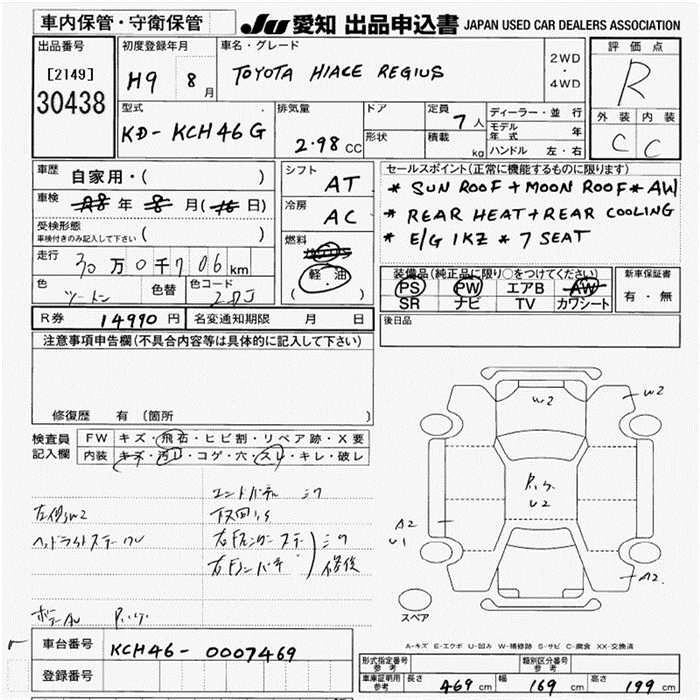 車内保管・守衛保管
JU 愛知 出品申込書 JAPAN USED CAR DEALERS ASSOCIATION
出品番号
[2149]
30438
初度登録年月
H9 8月
車名・グレード
TOYOTA HIACE REGIUS
2WD
・
4WD
評価点
R
外装 内装
C C
型式
KD-KCH46G
排気量
2.98CC
ドア
形状
定員
7人
積載
kg
ディーラー・並行
モデル年式 年
ハンドル 左・右
車歴
自家用・( )
車検
年 月( 日)
受検形態
車検付きのみ記入して下さい ( )
走行
30万0千706km
色
ツートン
色替
色コード
シフト
AT
冷房
AC
燃料
軽・油
( )
セールスポイント(正常に機能するものに限ります)
* SUN ROOF + MOON ROOF * AW
* REAR HEAT + REAR COOLING
* E/G 1KZ * 7 SEAT
装備品(純正品に限り○をつけてください)
PS PW エアB AW
SR ナビ TV カワシート
新車保証書
有・無
R券 14990円 名変通知期限 月 日
後日品
注意事項申告欄(不具合内容等は具体的に記入して下さい)
修復歴 有(箇所 )
検査員
記入欄
FW キズ・飛石・ヒビ割・リペア跡・X要
内装 キズ・汚れ・コゲ・穴・スレ・キレ・破レ
W2
W2
U2
A2
U1
A2
スペア
A-キズ E-エクボ U-凹み W-補修跡 S-サビ C-腐食 XX-交換済
車台番号
KCH46-0007469
登録番号
形式指定番号
参考
類別区分番号
参考
車庫証明用
参考
長さ 469cm 幅 169cm 高さ 199cm